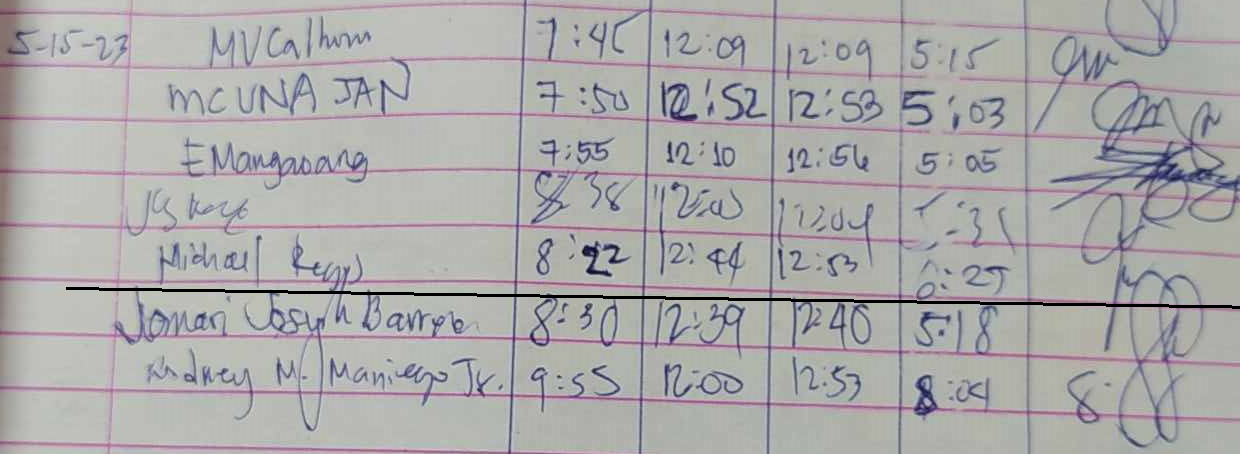 5-15-23 MVCalhom 7:45 12:09 12:09 5:15
MCUNA JAN 7:50 12:52 12:53 5:03
EMangaoang 7:55 12:10 12:56 5:05
38 12:00
Michael 8:22 12:44 12:53 6:25
Jomari Joseph 8:30 12:39 12:40 5:18
M. Maniego Jr. 9:55 12:00 12:53 8:04 8: